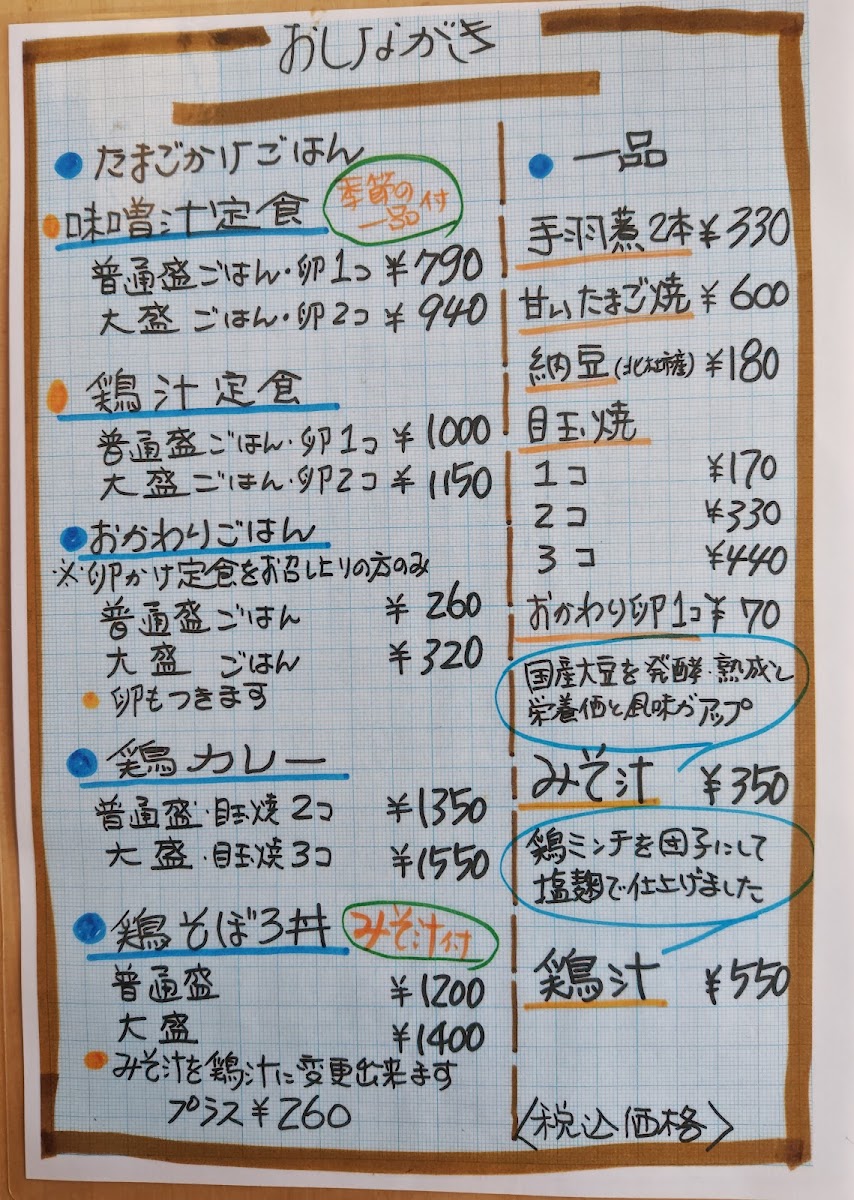 おしながき
たまごかけごはん
味噌汁定食
季節の
一品付
普通盛ごはん・卵1コ ¥790
大盛 ごはん・卵2コ ¥940
鶏汁定食
普通盛ごはん・卵1コ ¥1000
大盛ごはん・卵2コ ¥1150
おかわりごはん
※卵かけ定食をお召し上りの方のみ
普通盛ごはん ¥260
大盛 ごはん ¥320
卵もつきます
鶏カレー
普通盛・目玉焼2コ ¥1350
大盛・目玉焼3コ ¥1550
鶏そぼろ丼
みそ汁付
普通盛 ¥1200
大盛 ¥1400
みそ汁を鶏汁に変更出来ます
プラス¥260
一品
手羽煮2本 ¥330
甘いたまご焼 ¥600
納豆(北杜市産) ¥180
目玉焼
1コ ¥170
2コ ¥330
3コ ¥440
おかわり卵1コ ¥70
国産大豆を発酵・熟成し
栄養価と風味がアップ
みそ汁 ¥350
鶏ミンチを団子にして
塩麹で仕上げました
鶏汁 ¥550
〈税込価格〉